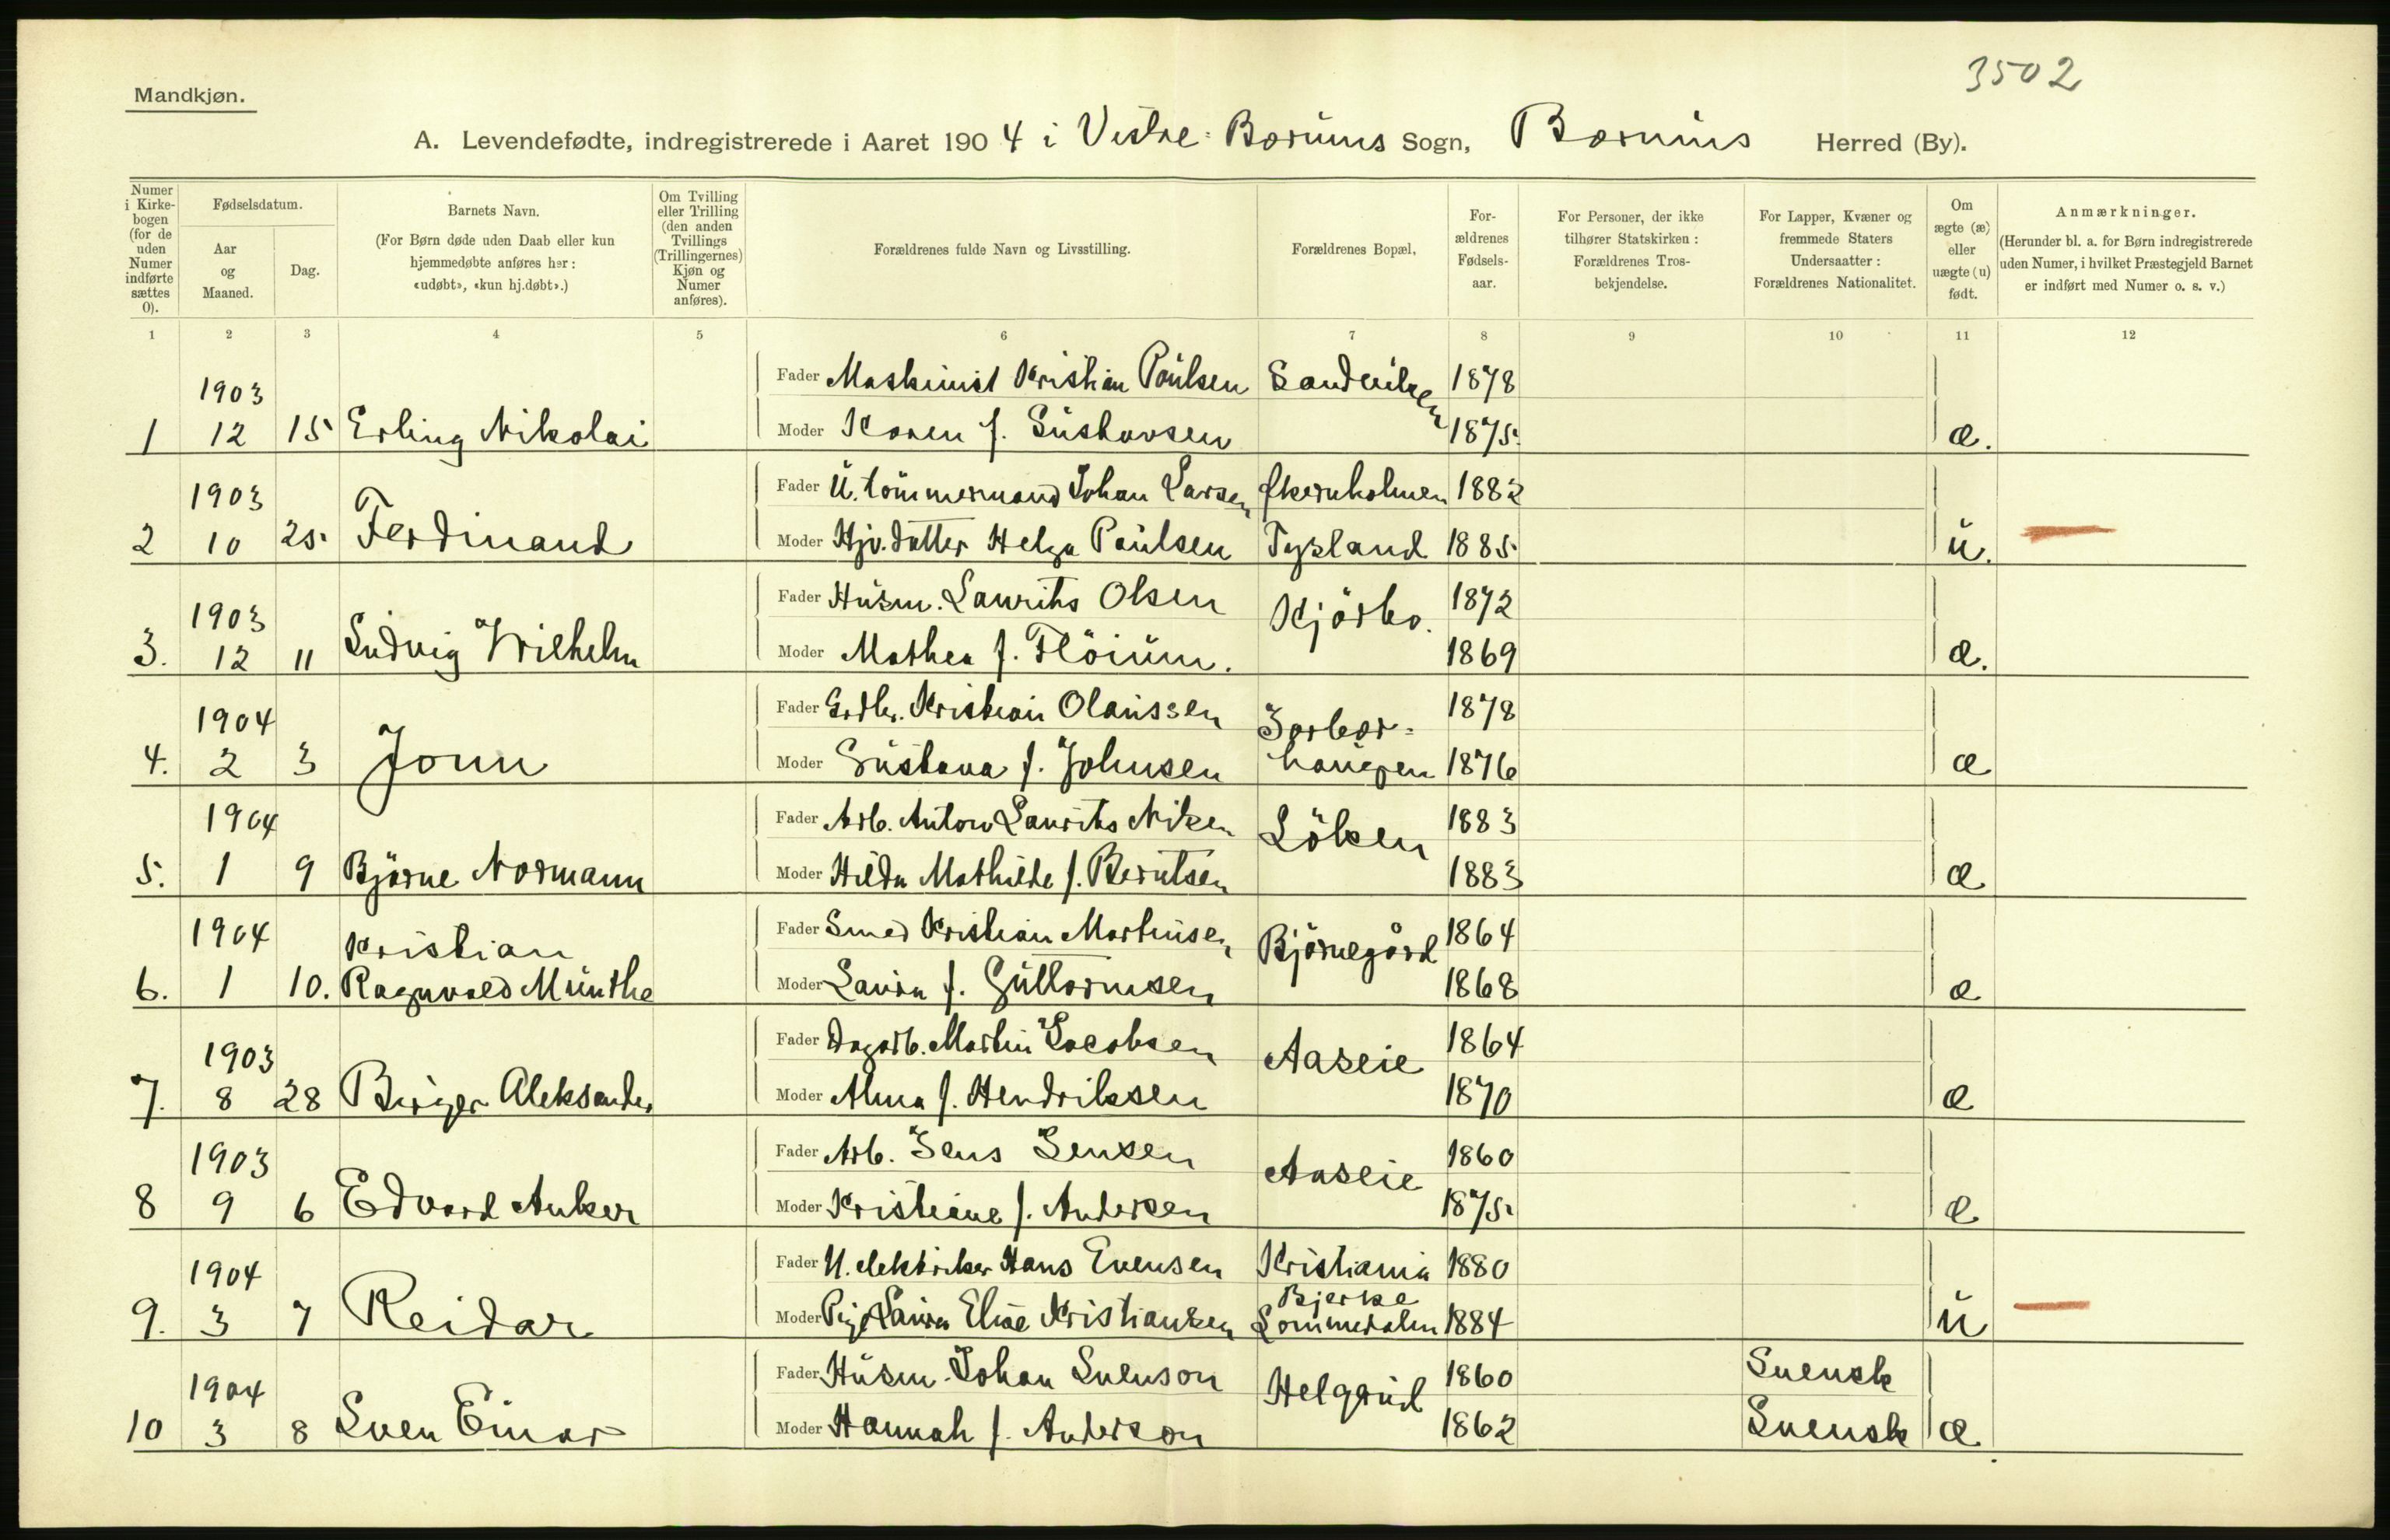 3502
Mandkjøn.
A. Levendefødte, indregistrerede i Aaret 1904 i Vestre-Bærums Sogn, Bærums Herred (By).
Numer i Kirkebogen (for de uden Numer indførte sættes 0).
Fødselsdatum.
Aar og Maaned.
Dag.
Barnets Navn.
(For Børn døde uden Daab eller kun hjemmedøbte anføres her: «udøbt», «kun hj.døbt».)
Om Tvilling eller Trilling (den anden Tvillings (Trillingernes) Kjøn og Numer anføres).
Forældrenes fulde Navn og Livsstilling.
Forældrenes Bopæl,
Forældrenes Fødselsaar.
For Personer, der ikke tilhører Statskirken: Forældrenes Trosbekjendelse.
For Lapper, Kvæner og fremmede Staters Undersaatter: Forældrenes Nationalitet.
Om ægte (æ) eller uægte (u) født.
Anmærkninger.
(Herunder bl. a. for Børn indregistrerede uden Numer, i hvilket Præstegjeld Barnet er indført med Numer o. s. v.)
1 2 3 4 5 6 7 8 9 10 11 12
1903 Fader Maskinist Kristian Paulsen Sandviken 1878
1 12 15 Erling Nikolai Moder Karen f. Gustavsen 1875. æ.
1903 Fader U. tömmermand Johan Larsen 1882
2 10 25. Ferdinand Moder Hjv. datter Helga Paulsen 1885 u.
1903 Fader Husm. Laurits Olsen Kjörbo. 1872
3. 12 11 Ludvig Wilhelm Moder Mathea f. Flöium. 1869 æ.
1904 Fader Grdbr. Kristian Olaussen 1878
4. 2 3 Jonn Moder Gustava f. Johnsen haugen 1876 æ
1904 Fader Arb. Anton Laurits Nilsen Löken 1883
5. 1 9 Björne Normann Moder Hilda Mathilde f. Berntsen 1883 æ
1904 Kristian Fader Smed Kristian Martinsen Björnegård 1864
6. 1 10. Ragnvald Munthe Moder Laura f. Guttormsen 1868 æ
1903 Fader Dagarb. Martin Jacobsen Aaseie 1864
7. 8 28 Birger Aleksander Moder Alma f. Hendriksen 1870 æ
1903 Fader Arb. Jens Jensen Aaseie 1860
8 9 6 Edvard Anker Moder Kristiane f. Andersen 1875. æ
1904 Fader U. elektriker Hans Evensen Kristiania 1880
9. 3 7 Reidar Moder Pige Laura Elise Kristiansen Bjerke Lommedalen 1884 u
1904 Fader Husm. Johan Svenson Helgerud 1860 Svensk
10 3 8 Sven Einar Moder Hannah f. Anderson 1862 Svensk æ